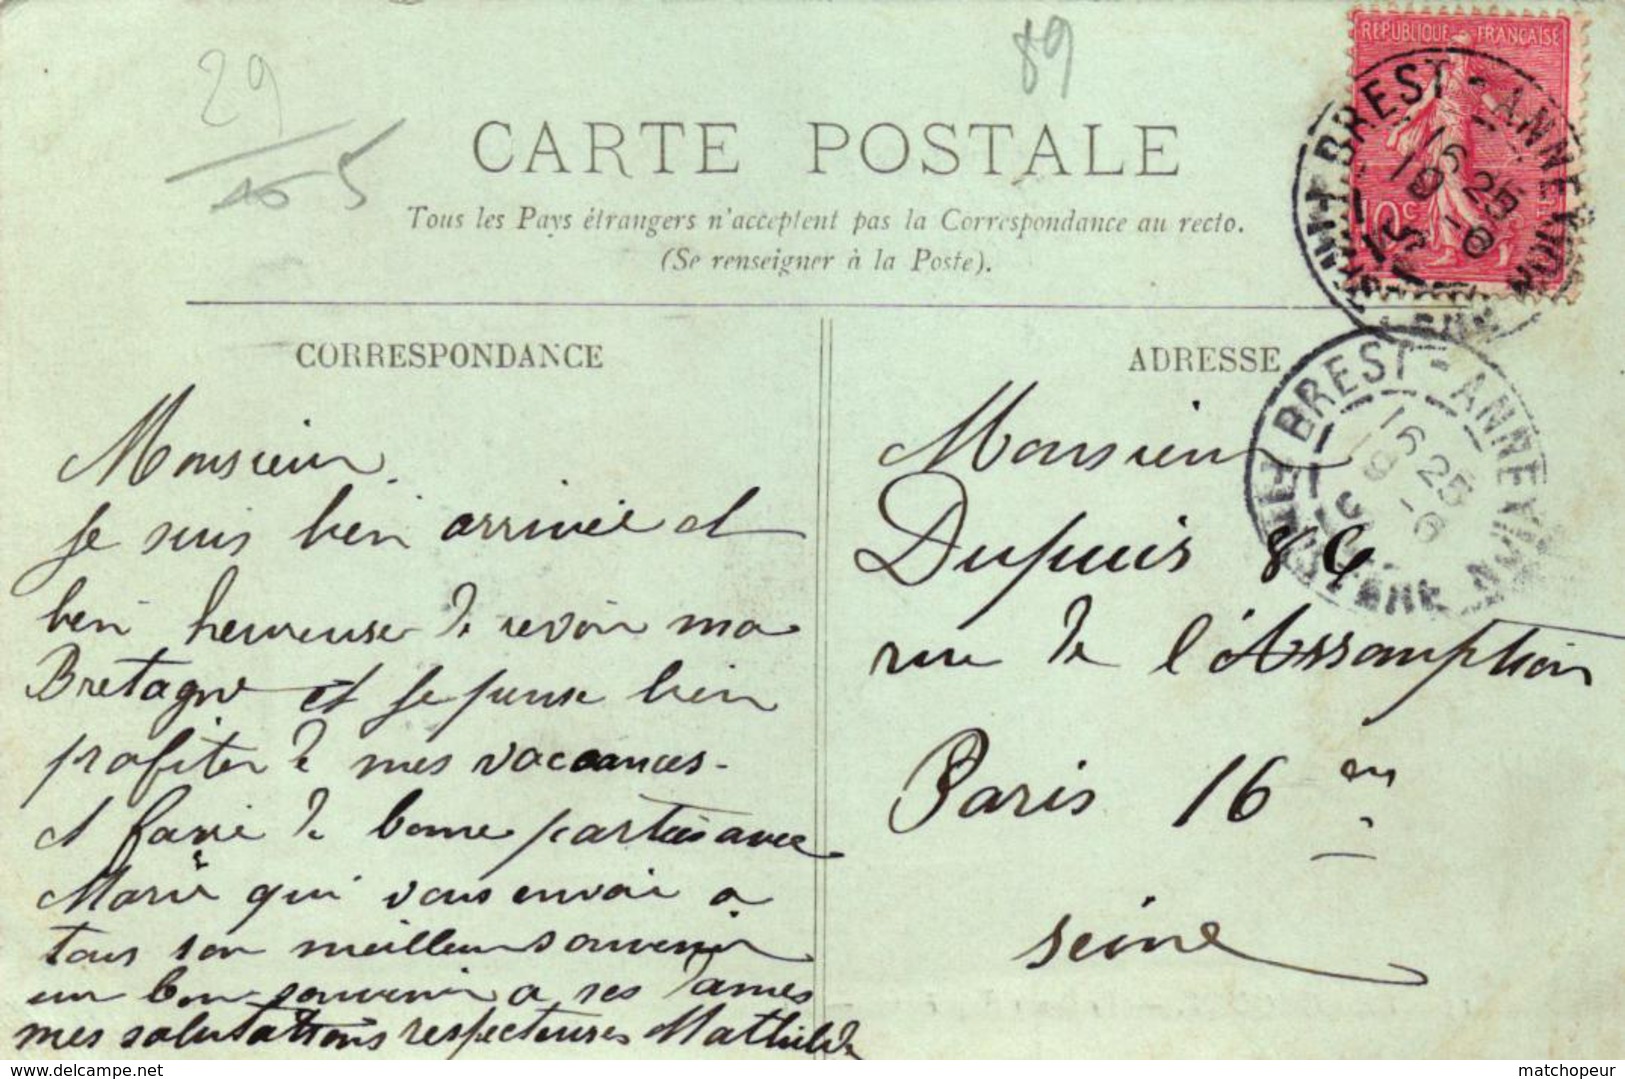 29
105
89
CARTE POSTALE
Tous les Pays étrangers n'acceptent pas la Correspondance au recto.
(Se renseigner à la Poste).
REPUBLIQUE FRANÇAISE
10c
BREST - ANNEXION
16 25
CORRESPONDANCE
Monsieur
Je suis bien arrivée et
bien heureuse de revoir ma
Bretagne et je pense bien
profiter de mes vacances-
et faire de bonne parties avec
Marie qui vous envoie a
tous son meilleur souvenir
un bon souvenir a ses Dames
mes salutations respectueuses Mathilde
ADRESSE
BREST - ANNEXION
16 25
Monsieur
Dupuis 86
rue de l'Assomption
Paris 16 em
seine
www.delcampe.net
matchopeur